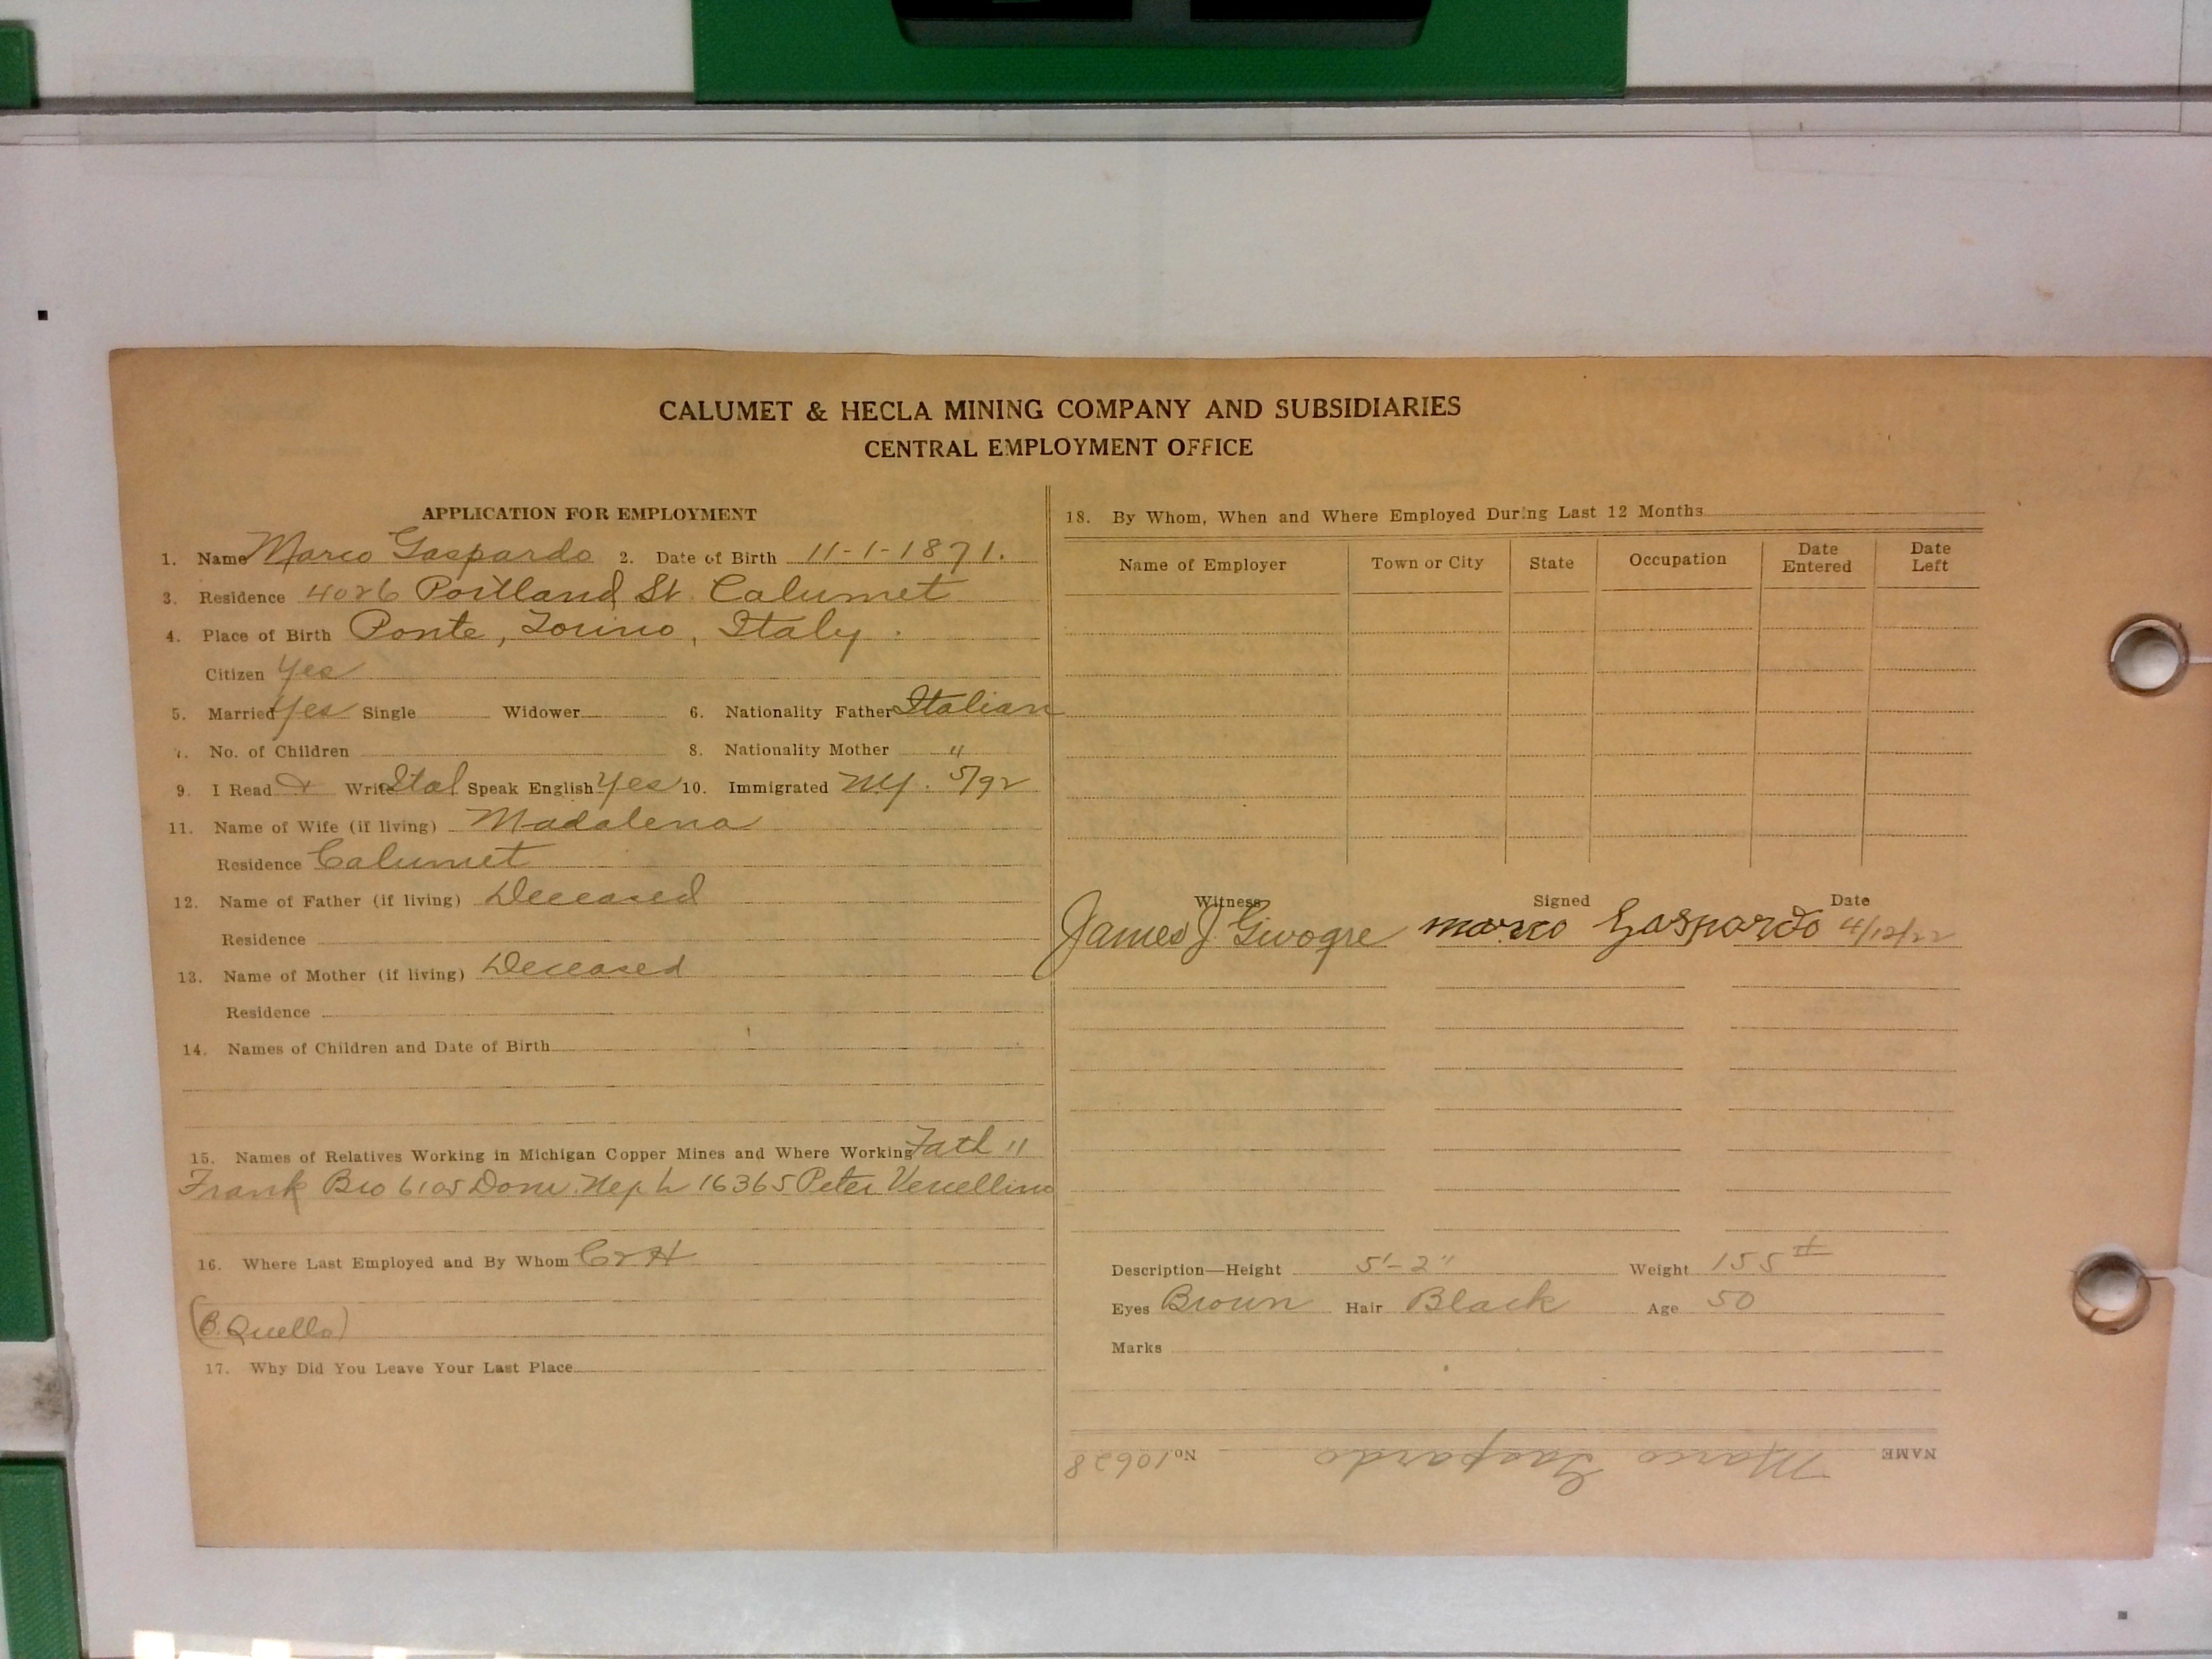 CALUMET & HECLA MINING COMPANY AND SUBSIDIARIES
CENTRAL EMPLOYMENT OFFICE
APPLICATION FOR EMPLOYMENT
1. Name Marco Gaspardo 2. Date of Birth 11-1-1871.
3. Residence 4026 Portland St. Calumet
4. Place of Birth Ponte, Torino, Italy.
Citizen Yes
5. Married Yes Single Widower 6. Nationality Father Italian
7. No. of Children 8. Nationality Mother "
9. I Read & Write Ital Speak English Yes 10. Immigrated NY. 5/92
11. Name of Wife (if living) Madalena
Residence Calumet
12. Name of Father (if living) Deceased
Residence
13. Name of Mother (if living) Deceased
Residence
14. Names of Children and Date of Birth
15. Names of Relatives Working in Michigan Copper Mines and Where Working
Frank Bro 6105 Dom. Neph 16365 Peter Vercellino
16. Where Last Employed and By Whom C & H
(B. Quello)
17. Why Did You Leave Your Last Place
18. By Whom, When and Where Employed During Last 12 Months
Name of Employer Town or City State Occupation Date Entered Date Left
Witness Signed Date
James J. Marco Gaspardo 4/12/22
Description—Height 5'-2" Weight 155 #
Eyes Brown Hair Black Age 50
Marks
NAME Marco Gaspardo No. 10628